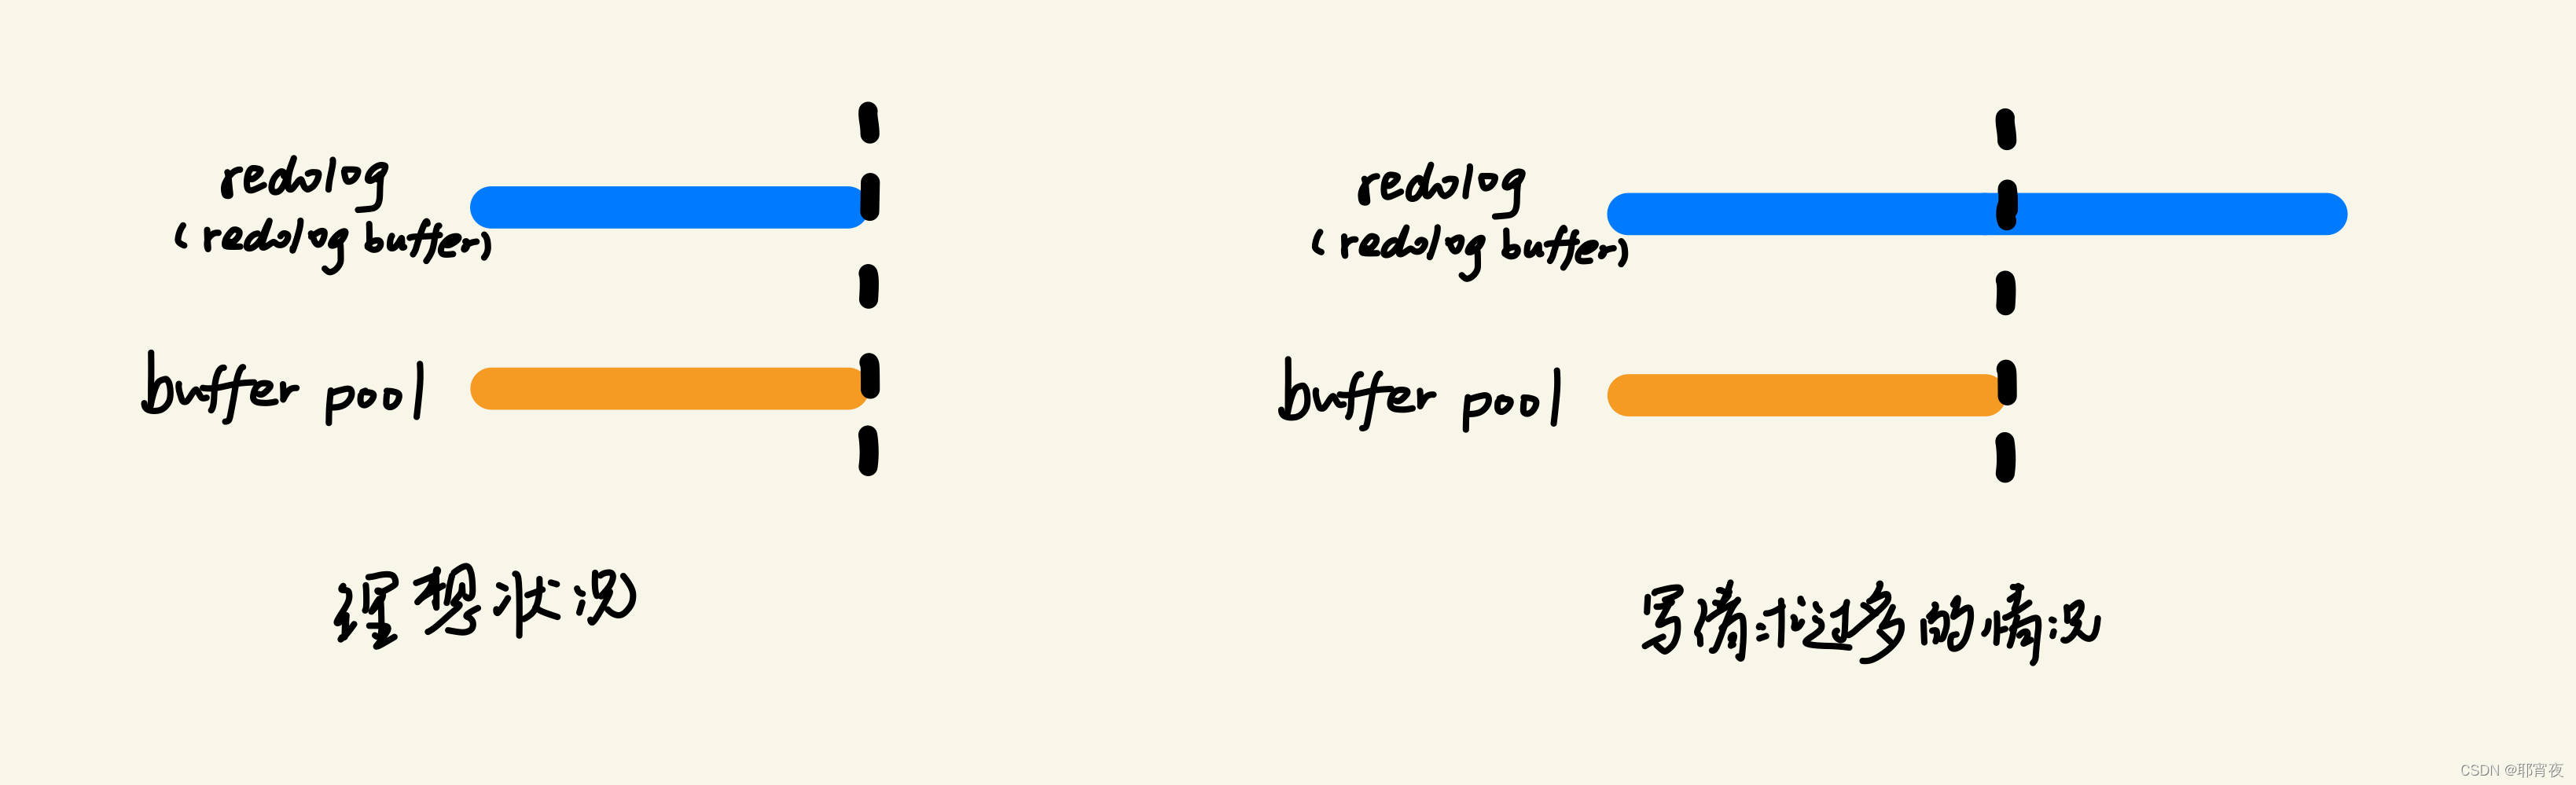 redolog
(redolog buffer)
buffer pool
理想状况
redolog
(redolog buffer)
buffer pool
写请求过多的情况
CSDN @耶宵夜